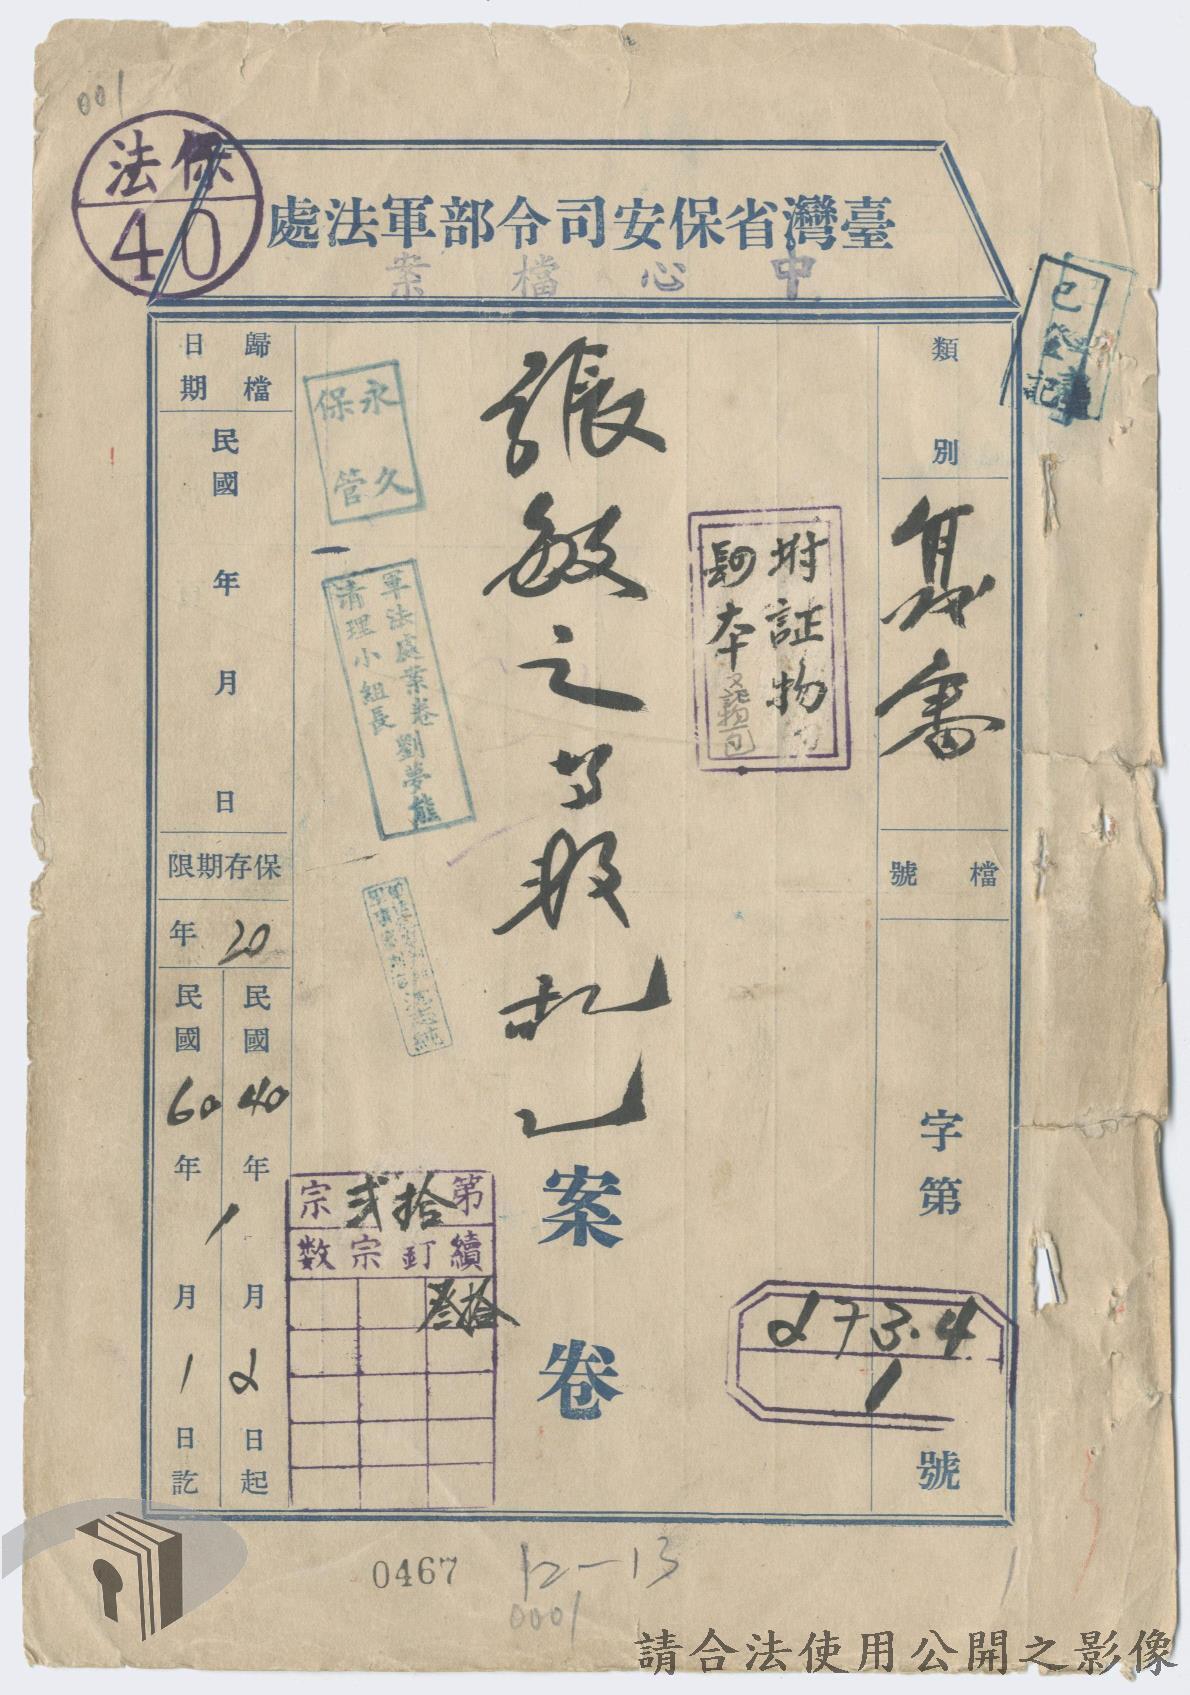 001
保法
40
臺灣省保安司令部軍法處
中心檔案
已登記
類別
檔號
字第
號
273.4
1
附証物
本
張敏之等叛亂
案卷
永久
保管
軍法處案卷
清理小組長
劉夢熊
第拾貳宗
續訂宗数
拾叁
歸檔
日期
民國 年 月 日
保存期限
20年
民國40年 月2日起
民國60年1月1日訖
0467
12-13
0001
請合法使用公開之影像